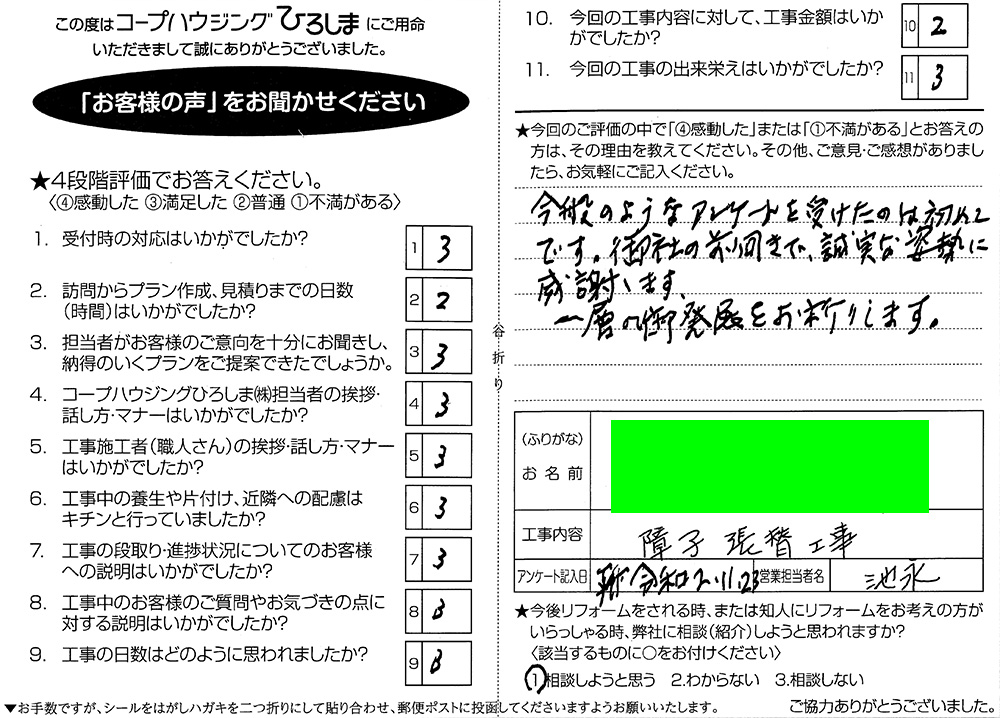 この度はコープハウジングひろしまにご用命
いただきまして誠にありがとうございました。
「お客様の声」をお聞かせください
★4段階評価でお答えください。
〈④感動した ③満足した ②普通 ①不満がある〉
1. 受付時の対応はいかがでしたか?
1 3
2. 訪問からプラン作成、見積りまでの日数
(時間)はいかがでしたか?
2 2
3. 担当者がお客様のご意向を十分にお聞きし、
納得のいくプランをご提案できたでしょうか。
3 3
4. コープハウジングひろしま㈱担当者の挨拶・
話し方・マナーはいかがでしたか?
4 3
5. 工事施工者(職人さん)の挨拶・話し方・マナー
はいかがでしたか?
5 3
6. 工事中の養生や片付け、近隣への配慮は
キチンと行っていましたか?
6 3
7. 工事の段取り・進捗状況についてのお客様
への説明はいかがでしたか?
7 3
8. 工事中のお客様のご質問やお気づきの点に
対する説明はいかがでしたか?
8 3
9. 工事の日数はどのように思われましたか?
9 3
谷折り
10. 今回の工事内容に対して、工事金額はいか
がでしたか?
10 2
11. 今回の工事の出来栄えはいかがでしたか?
11 3
★今回のご評価の中で「④感動した」または「①不満がある」とお答えの
方は、その理由を教えてください。その他、ご意見・ご感想がありまし
たら、お気軽にご記入ください。
今般のようなアンケートを受けたのは初めて
です。御社の前向きで、誠実な姿勢に
感謝います。
一層の御発展をお祈りします。
(ふりがな)
お名前
工事内容 障子張替工事
アンケート記入日 令和2.11.23 営業担当者名 池永
★今後リフォームをされる時、または知人にリフォームをお考えの方が
いらっしゃる時、弊社に相談(紹介)しようと思われますか?
〈該当するものに○をお付けください〉
1.相談しようと思う 2.わからない 3.相談しない
▼お手数ですが、シールをはがしハガキを二つ折りにして貼り合わせ、郵便ポストに投函してくださいますようお願いいたします。
ご協力ありがとうございました。